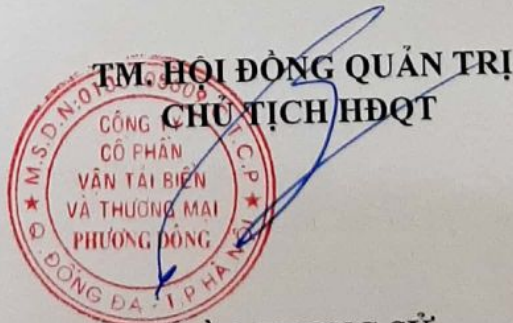 TM. HỘI ĐỒNG QUẢN TRỊ
CHỦ TỊCH HĐQT
M.S.D.N:
C.T.C.P
CÔNG TY
CỔ PHẦN
VẬN TẢI BIỂN
VÀ THƯƠNG MẠI
PHƯƠNG ĐÔNG
Q. ĐỐNG ĐA - T.P HÀ NỘI